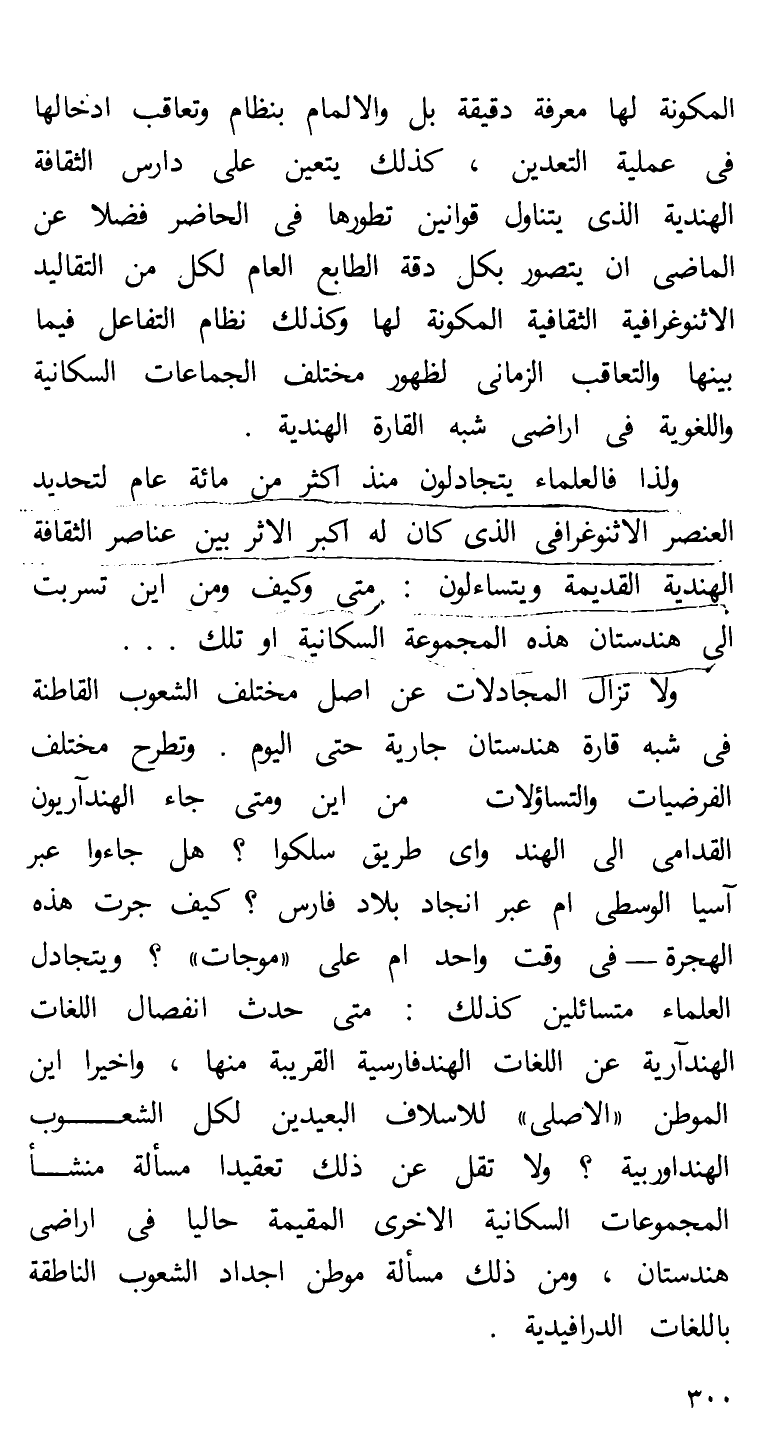 المكونة لها معرفة دقيقة بل والالمام بنظام وتعاقب ادخالها
فى عملية التعدين ، كذلك يتعين على دارس الثقافة
الهندية الذى يتناول قوانين تطورها فى الحاضر فضلا عن
الماضى ان يتصور بكل دقة الطابع العام لكل من التقاليد
الاثنوغرافية الثقافية المكونة لها وكذلك نظام التفاعل فيما
بينها والتعاقب الزمانى لظهور مختلف الجماعات السكانية
واللغوية فى اراضى شبه القارة الهندية .
ولذا فالعلماء يتجادلون منذ اكثر من مائة عام لتحديد
العنصر الاثنوغرافى الذى كان له اكبر الاثر بين عناصر الثقافة
الهندية القديمة ويتساءلون : متى وكيف ومن اين تسربت
الى هندستان هذه المجموعة السكانية او تلك . . .
ولا تزال المجادلات عن اصل مختلف الشعوب القاطنة
فى شبه قارة هندستان جارية حتى اليوم . وتطرح مختلف
الفرضيات والتساؤلات من اين ومتى جاء الهندآريون
القدامى الى الهند واى طريق سلكوا ؟ هل جاءوا عبر
آسيا الوسطى ام عبر انجاد بلاد فارس ؟ كيف جرت هذه
الهجرة — فى وقت واحد ام على «موجات» ؟ ويتجادل
العلماء متسائلين كذلك : متى حدث انفصال اللغات
الهندآرية عن اللغات الهندفارسية القريبة منها ، واخيرا اين
الموطن «الاصلى» للاسلاف البعيدين لكل الشعـــــوب
الهنداوربية ؟ ولا تقل عن ذلك تعقيدا مسألة منشـــأ
المجموعات السكانية الاخرى المقيمة حاليا فى اراضى
هندستان ، ومن ذلك مسألة موطن اجداد الشعوب الناطقة
باللغات الدرافيدية .
٣٠٠